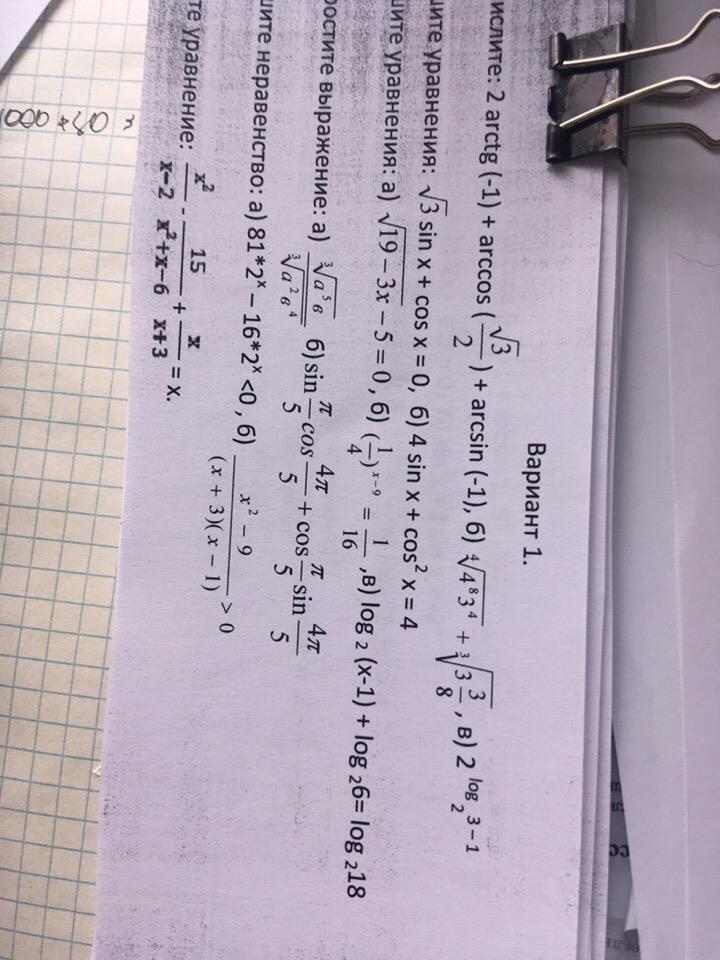 Вариант 1.
ислите: 2 arctg (-1) + arccos (√3/2) + arcsin (-1), б) ∜(4⁸3⁴) + ∛(3 3/8), в) 2^(log₂ 3 – 1)
ите уравнения: √3 sin x + cos x = 0, б) 4 sin x + cos² x = 4
ите уравнения: а) √(19 – 3x) – 5 = 0, б) (1/4)^(x–9) = 1/16, в) log ₂ (x-1) + log ₂6= log ₂18
остите выражение: а) ∛(a⁵в)/∛(a²в⁴) б) sin π/5 cos 4π/5 + cos π/5 sin 4π/5
ите неравенство: а) 81*2ˣ – 16*2ˣ <0 , б) (x² – 9)/((x + 3)(x – 1)) > 0
те уравнение: x²/(x–2) - 15/(x²+x–6) + x/(x+3) = x.